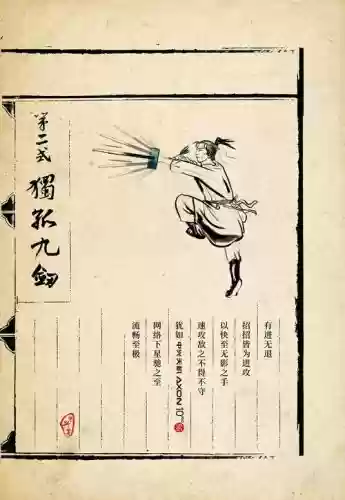 第二式
獨孤九劍
有进无退
招招皆为进攻
以快至无影之手
速攻敌之不得不守
犹如中兴天机 AXON 10
网络下星驰之至
流畅至极